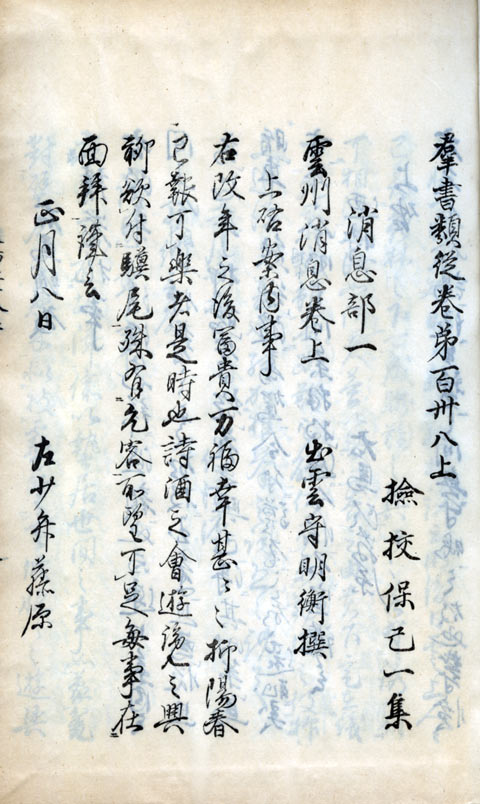 羣書類從卷第百卅八上
撿挍保己一集
消息部一
雲州消息卷上　出雲守明衡撰
上啓案內事
右改年之後富貴万福幸甚〻〻抑陽春
已報可樂者是時也詩酒之會遊覽之興
聊欲付驥尾殊有允容所望可足每事在
面拜謹言
正月八日　左少弁藤原